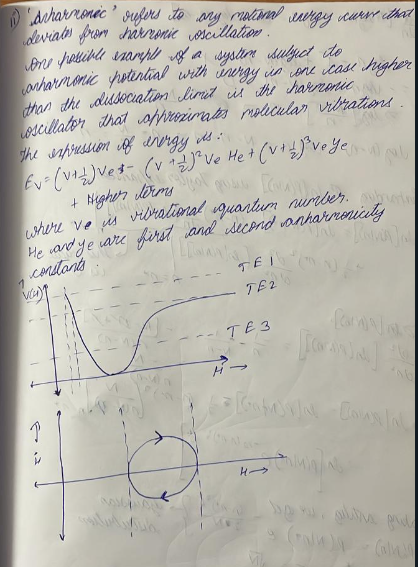 ii) 'Anharmonic' refers to any motional energy curve that
deviates from harmonic oscillation.
One possible example of a system subject to
anharmonic potential with energy in one case higher
than the dissociation limit is the harmonic
oscillator that approximates molecular vibrations.
The expression of energy is:
Ev = (v+1/2)νe - (v+1/2)²νe He + (v+1/2)³νe ye
+ Higher terms
where ve is vibrational quantum number.
He and ye are first and second anharmonicity
constants
TE1
V(H)
TE2
TE3
H→
H→